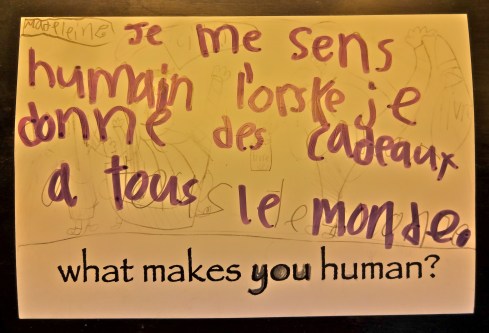 Madeleine
Je me sens
humain l'orske je
donne des cadeaux
a tous le monde.
what makes you human?